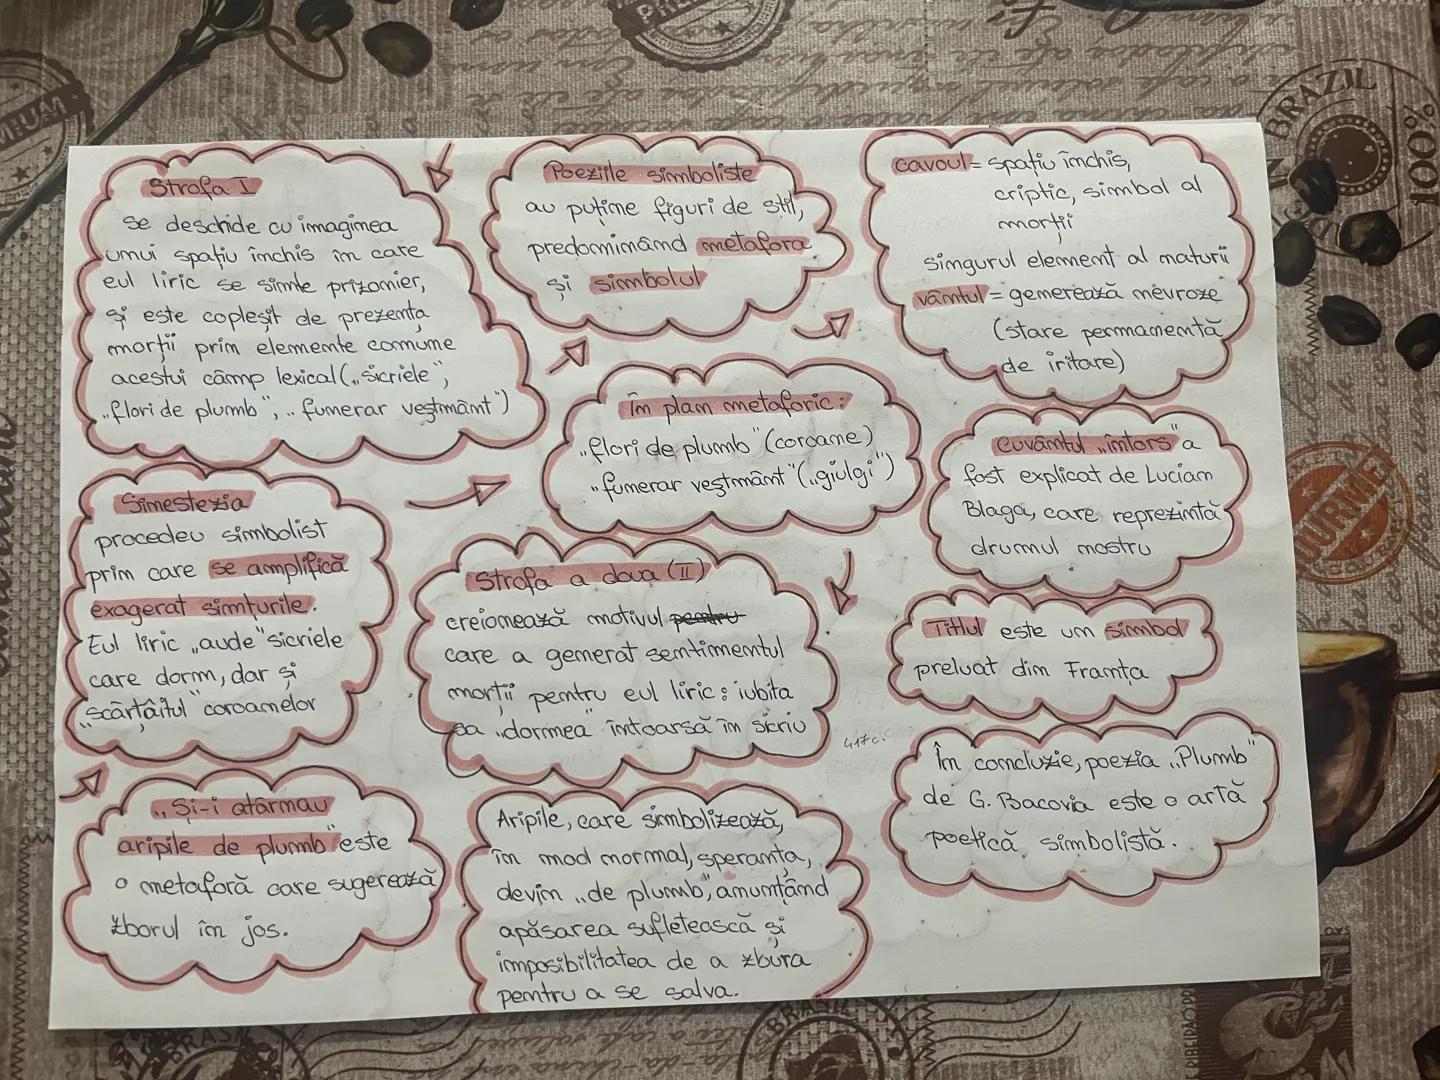 Strofa I
se deschide cu imaginea
unui spațiu închis în care
eul liric se simte prizonier,
și este copleșit de prezența
morții prin elemente comune
acestui câmp lexical („sicriele",
„flori de plumb", „funerar veștmânt")
Poeziile simboliste
au puține figuri de stil,
predominând metafora
și simbolul
cavoul = spațiu închis,
criptic, simbol al
morții
singurul element al naturii
vântul = generează nevroze
(stare permanentă
de iritare)
În plan metaforic:
„flori de plumb" (coroane)
„funerar veștmânt" („giulgi")
Cuvântul „întors" a
fost explicat de Lucian
Blaga, care reprezintă
drumul nostru
Sinestezia
procedeu simbolist
prin care se amplifică
exagerat simțurile.
Eul liric „aude" sicriele
care dorm, dar și
„scârțâitul" coroanelor
Strofa a doua (II)
creionează motivul pentru
care a generat sentimentul
morții pentru eul liric: iubita
sa „dormea" întoarsă în sicriu
Titlul este un simbol
preluat din Franța
417c.
„Și-i atârnau
aripile de plumb" este
o metaforă care sugerează
zborul în jos.
Aripile, care simbolizează,
în mod normal, speranța,
devin „de plumb", anunțând
apăsarea sufletească și
imposibilitatea de a zbura
pentru a se salva.
În concluzie, poezia „Plumb"
de G. Bacovia este o artă
poetică simbolistă.
PREMIUM
BRAZIL
100%
GOURMET
BRASIL